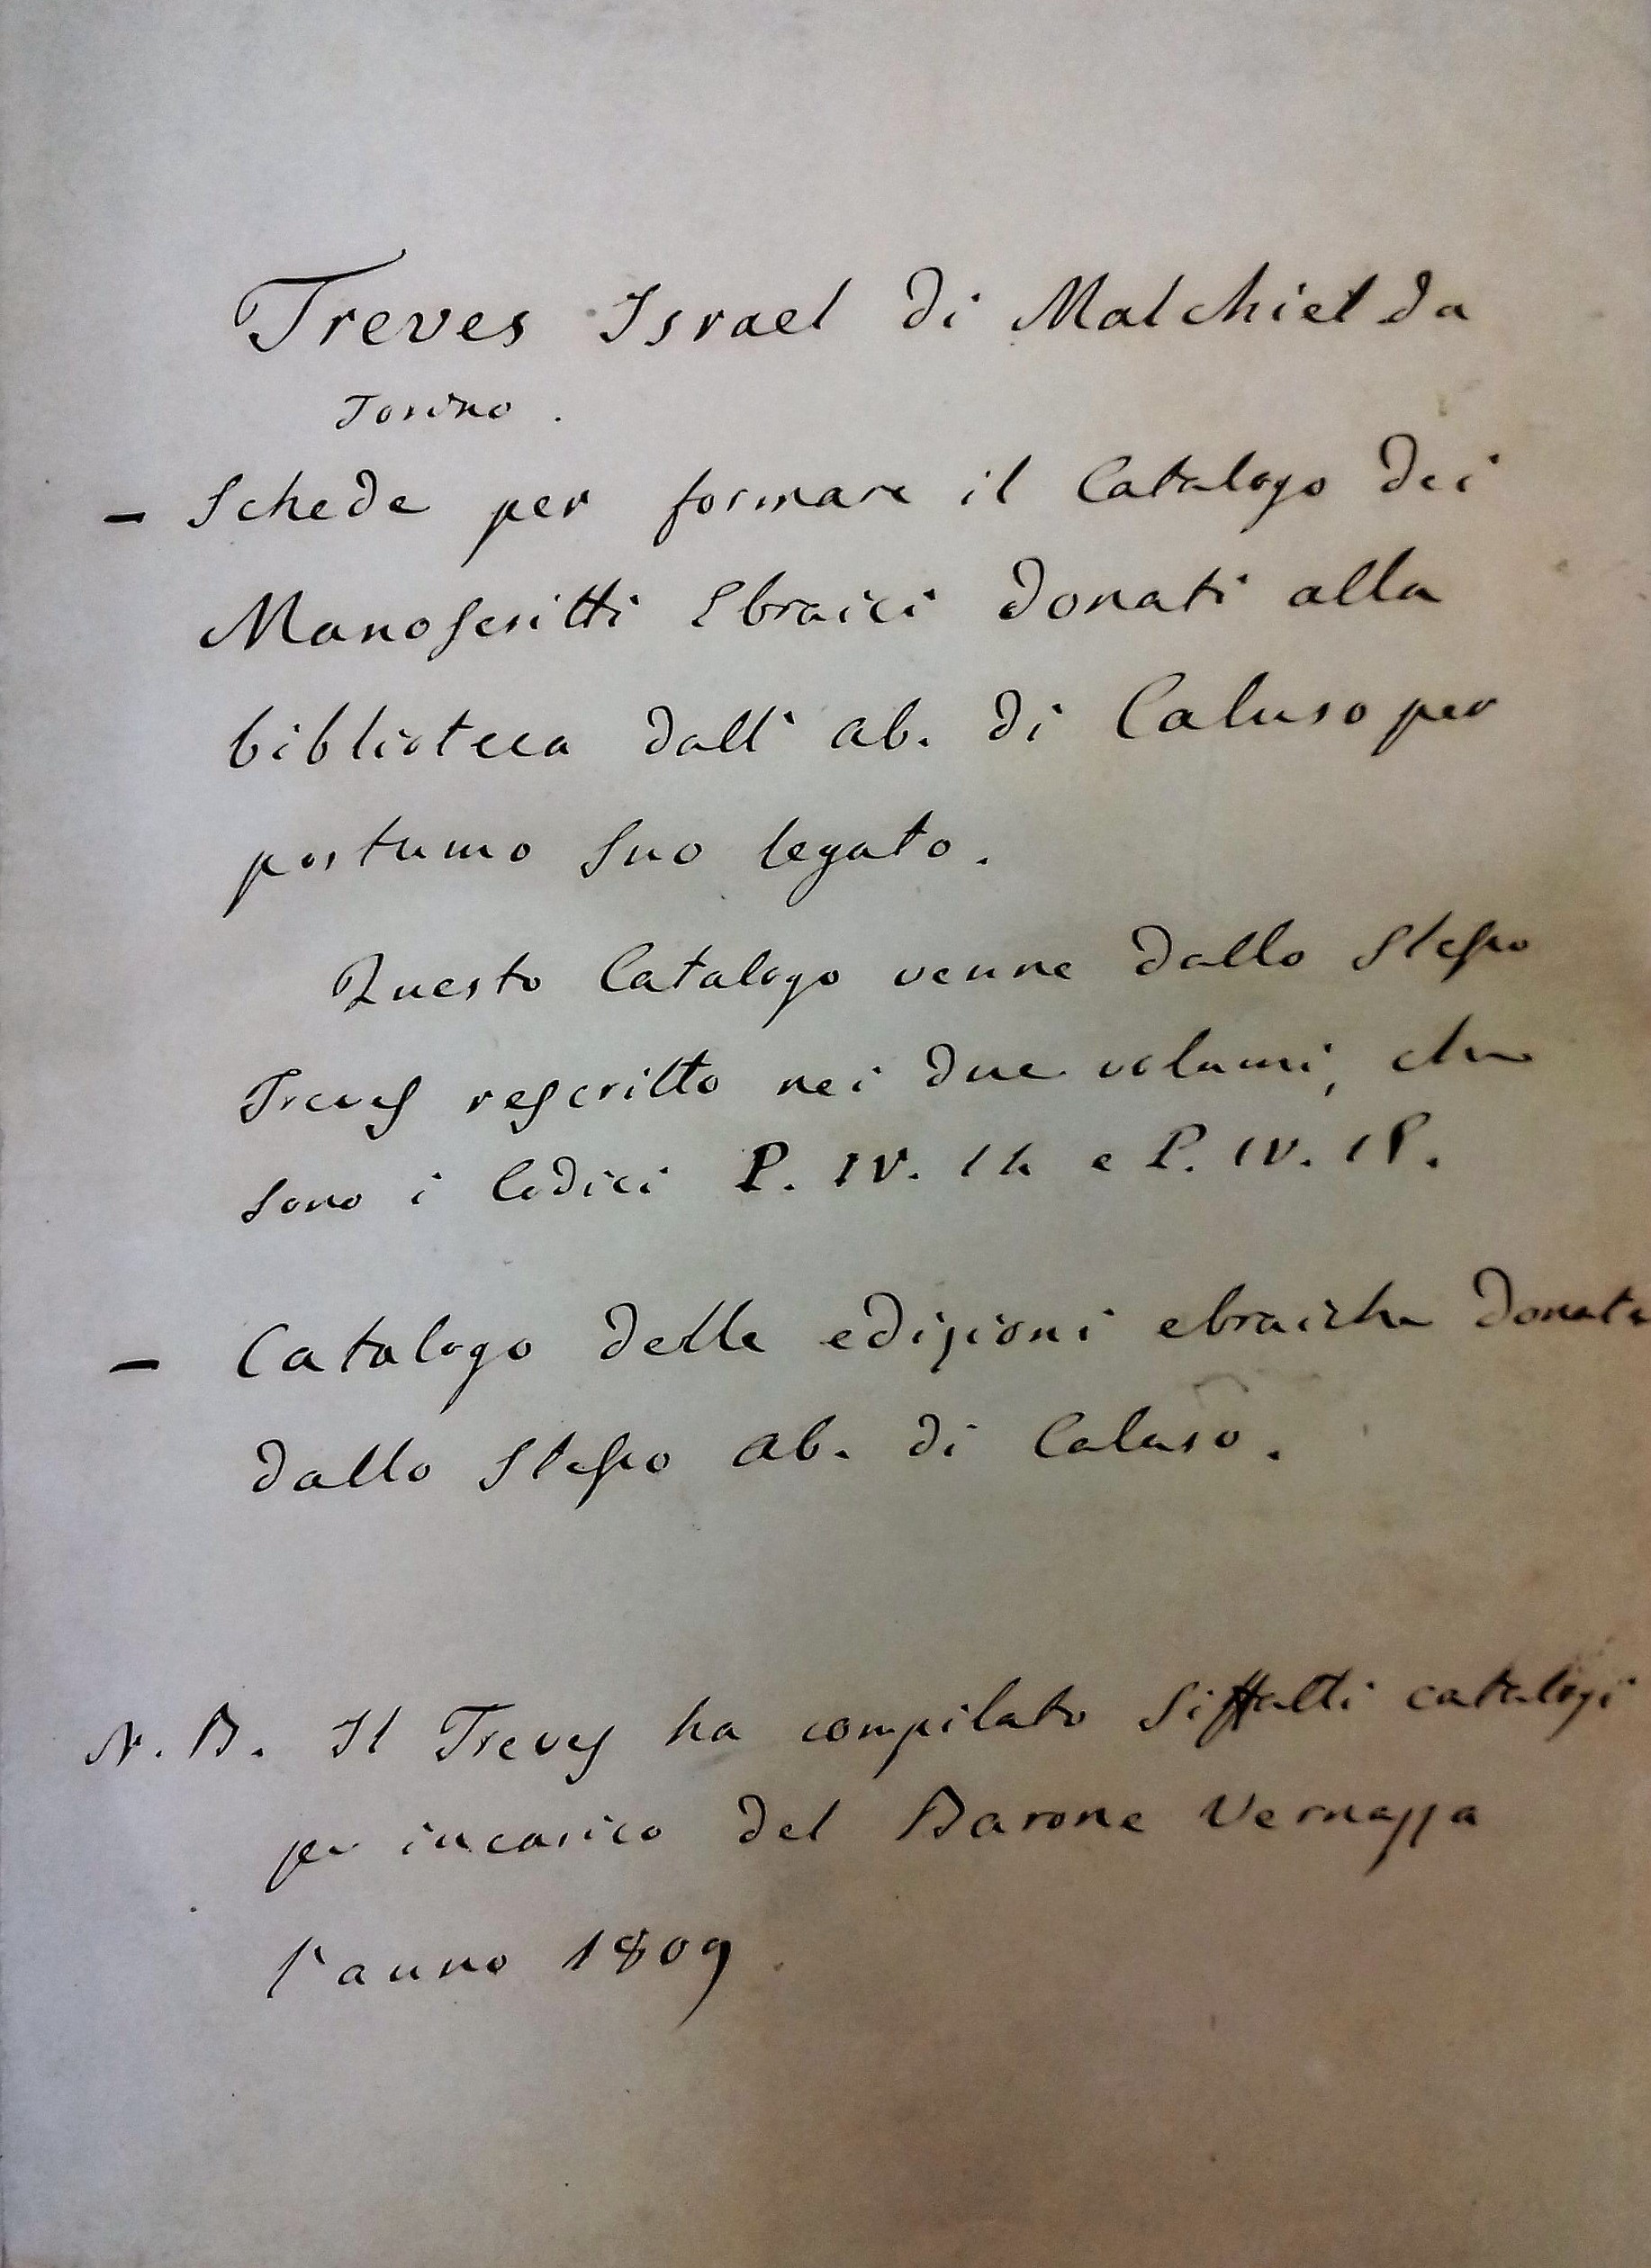 Treves Israel di Malchiel da
Torino .
– Schede per formare il Catalogo dei
Manoscritti Ebraici donati alla
biblioteca dall' ab. di Caluso per
postumo suo legato .
Questo Catalogo venne dallo stesso
Treves rescritto nei due volumi, che
sono i Codici P. IV. e P. IV.
– Catalogo delle edizioni ebraiche donate
dallo stesso ab. di Caluso .
N. B. Il Treves ha compilato siffatti catalogi
per incarico del Barone Vernazza
l'anno 1809 .